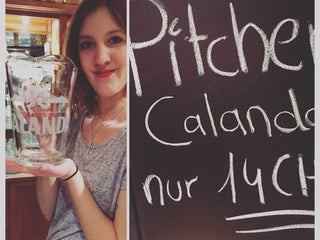 LAND
Pitcher
Calanda
nur 14 CH